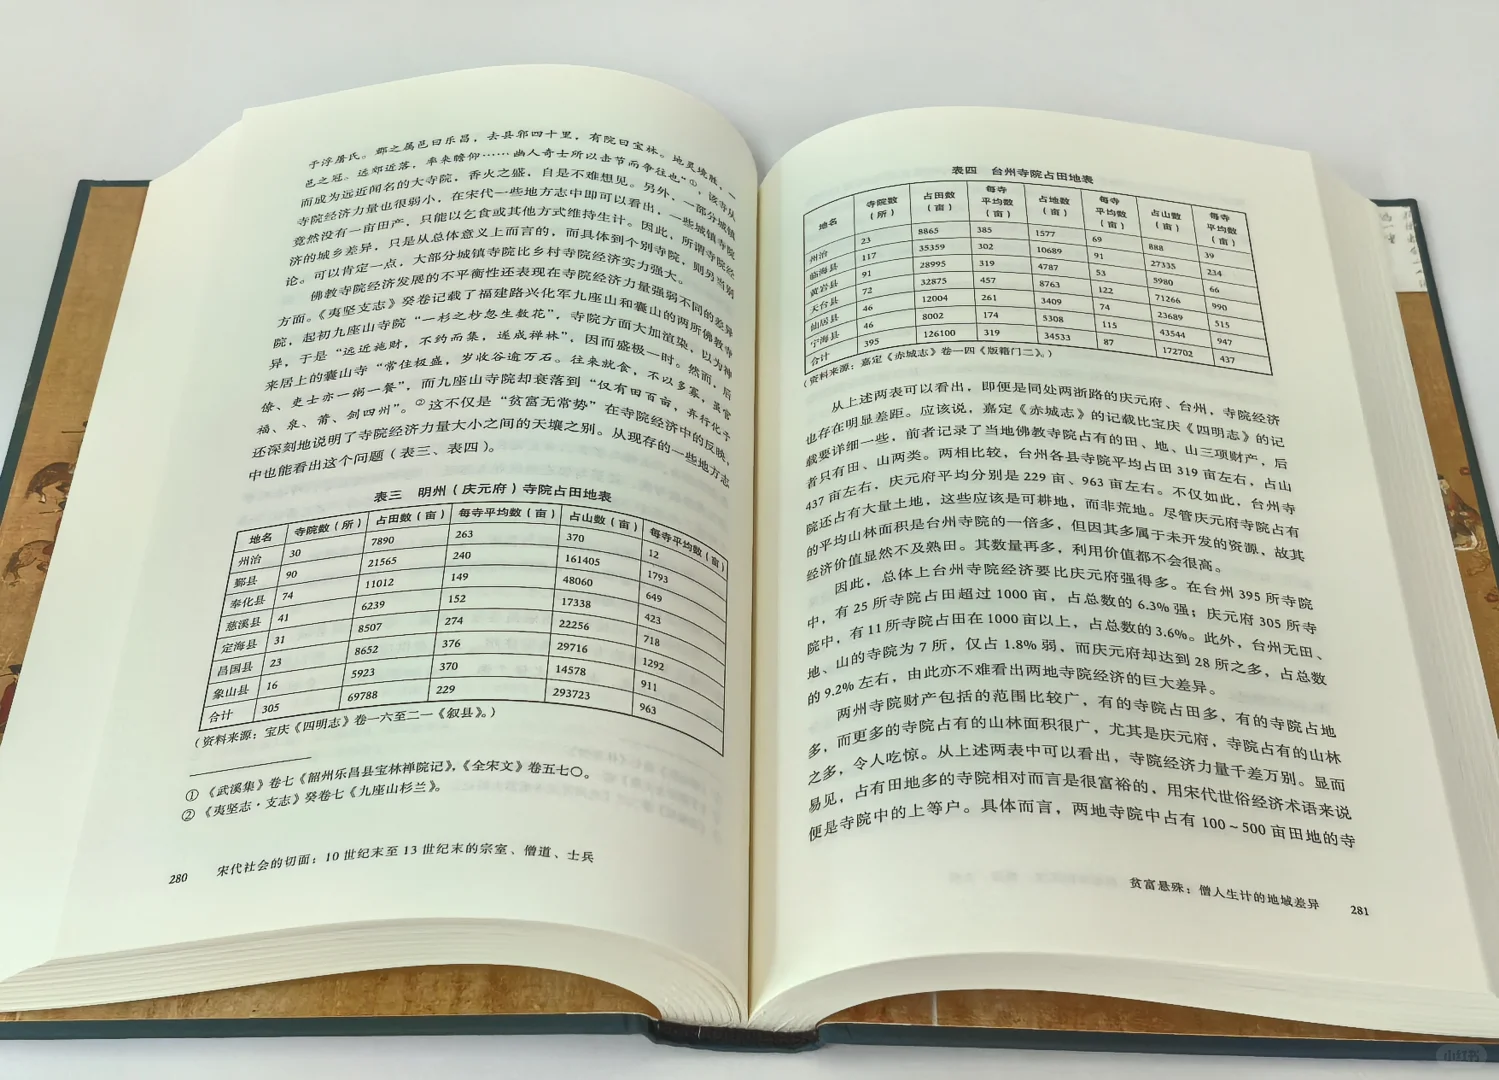 于浮屠氏。郡之属邑曰乐昌，去县郛四十里，有院曰宝林。地灵境胜，一
邑之冠。远郊近落，率来瞻仰……幽人奇士所以击节而争往也”①，该寺从
而成为远近闻名的大寺院，香火之盛，自是不难想见。另外，一部分城镇
寺院经济力量也很弱小，在宋代一些地方志中即可以看出，一些城镇寺院
竟然没有一亩田产，只能以乞食或其他方式维持生计。因此，所谓寺院经
济的城乡差异，只是从总体意义上而言的，而具体到个别寺院，则另当别
论。可以肯定一点，大部分城镇寺院比乡村寺院经济实力强大。
佛教寺院经济发展的不平衡性还表现在寺院经济力量强弱不同的差异
方面。《夷坚支志》癸卷记载了福建路兴化军九座山和囊山的两所佛教寺
院，起初九座山寺院“一杉之杪忽生数花”，寺院方面大加渲染，以为神
异，于是“远近施财，不约而集，遂成禅林”，因而盛极一时。然而，后
来居上的囊山寺“常住极盛，岁收谷逾万石。往来就食，不以多寡，虽官
僚、吏士亦一粥一餐”，而九座山寺院却衰落到“仅有田百亩，弃行化于
福、泉、莆、剑四州”。②这不仅是“贫富无常势”在寺院经济中的反映，
还深刻地说明了寺院经济力量大小之间的天壤之别。从现存的一些地方志
中也能看出这个问题（表三、表四）。
表三 明州（庆元府）寺院占田地表
地名 寺院数（所） 占田数（亩） 每寺平均数（亩） 占山数（亩） 每寺平均数（亩）
州治 30 7890 263 370 12
鄞县 90 21565 240 161405 1793
奉化县 74 11012 149 48060 649
慈溪县 41 6239 152 17338 423
定海县 31 8507 274 22256 718
昌国县 23 8652 376 29716 1292
象山县 16 5923 370 14578 911
合计 305 69788 229 293723 963
（资料来源：宝庆《四明志》卷一六至二一《叙县》。）
①《武溪集》卷七《韶州乐昌县宝林禅院记》，《全宋文》卷五七〇。
②《夷坚志·支志》癸卷七《九座山杉兰》。
280 宋代社会的切面：10世纪末至13世纪末的宗室、僧道、士兵
表四 台州寺院占田地表
地名 寺院数（所） 占田数（亩） 每寺平均数（亩） 占地数（亩） 每寺平均数（亩） 占山数（亩） 每寺平均数（亩）
州治 23 8865 385 1577 69 888 39
临海县 117 35359 302 10689 91 27335 234
黄岩县 91 28995 319 4787 53 5980 66
天台县 72 32875 457 8763 122 71266 990
仙居县 46 12004 261 3409 74 23689 515
宁海县 46 8002 174 5308 115 43544 947
合计 395 126100 319 34533 87 172702 437
（资料来源：嘉定《赤城志》卷一四《版籍门二》。）
从上述两表可以看出，即便是同处两浙路的庆元府、台州，寺院经济
也存在明显差距。应该说，嘉定《赤城志》的记载比宝庆《四明志》的记
载要详细一些，前者记录了当地佛教寺院占有的田、地、山三项财产，后
者只有田、山两类。两相比较，台州各县寺院平均占田319亩左右，占山
437亩左右，庆元府平均分别是229亩、963亩左右。不仅如此，台州寺
院还占有大量土地，这些应该是可耕地，而非荒地。尽管庆元府寺院占有
的平均山林面积是台州寺院的一倍多，但因其多属于未开发的资源，故其
经济价值显然不及熟田。其数量再多，利用价值都不会很高。
因此，总体上台州寺院经济要比庆元府强得多。在台州395所寺院
中，有25所寺院占田超过1000亩，占总数的6.3%强；庆元府305所寺
院中，有11所寺院占田在1000亩以上，占总数的3.6%。此外，台州无田、
地、山的寺院为7所，仅占1.8%弱，而庆元府却达到28所之多，占总数
的9.2%左右，由此亦不难看出两地寺院经济的巨大差异。
两州寺院财产包括的范围比较广，有的寺院占田多，有的寺院占地
多，而更多的寺院占有的山林面积很广，尤其是庆元府，寺院占有的山林
之多，令人吃惊。从上述两表中可以看出，寺院经济力量千差万别。显而
易见，占有田地多的寺院相对而言是很富裕的，用宋代世俗经济术语来说
便是寺院中的上等户。具体而言，两地寺院中占有100～500亩田地的寺
贫富悬殊：僧人生计的地域差异 281
小红书